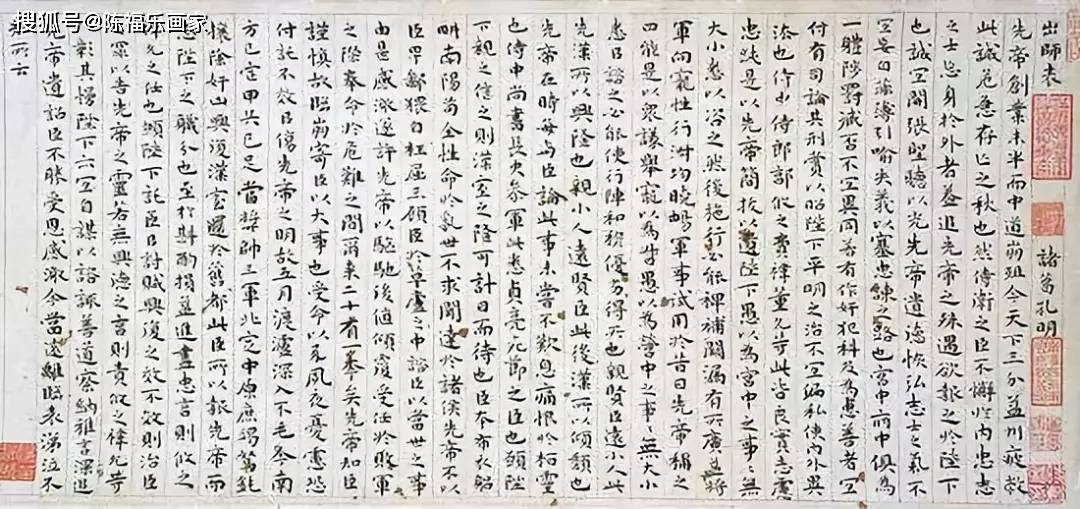 搜狐号@陈福乐画家
出師表 諸葛孔明
先帝創業未半而中道崩殂今天下三分益州疲敝
此誠危急存亡之秋也然侍衛之臣不懈於內忠志
之士忘身於外者蓋追先帝之殊遇欲報之於陛下
也誠宜開張聖聽以光先帝遺德恢弘志士之氣不
宜妄自菲薄引喻失義以塞忠諫之路也宮中府中俱為
一體陟罰臧否不宜異同若有作奸犯科及為忠善者宜
付有司論其刑賞以昭陛下平明之治不宜偏私使內外異
法也侍中侍郎郭攸之費禕董允等此皆良實志慮
忠純是以先帝簡拔以遺陛下愚以為宮中之事〻無
大小悉以咨之然後施行必能裨補闕漏有所廣益將
軍向寵性行淑均曉暢軍事試用於昔日先帝稱之
曰能是以眾議舉寵以為督愚以為營中之事〻無大小
悉以諮之必能使行陣和穆優劣得所也親賢臣遠小人此
先漢所以興隆也親小人遠賢臣此後漢所以傾頹也
先帝在時每與臣論此事未嘗不歎息痛恨於桓靈
也侍中尚書長史參軍此悉貞亮死節之臣也願陛
下親之信之則漢室之隆可計日而待也臣本布衣躬
耕南陽苟全性命於亂世不求聞達於諸侯先帝不以
臣卑鄙猥自枉屈三顧臣於草廬之中諮臣以當世之事
由是感激遂許先帝以驅馳後值傾覆受任於敗軍
之際奉命於危難之間爾來二十有一年矣先帝知臣
謹慎故臨崩寄臣以大事也受命以來夙夜憂慮恐
付託不效以傷先帝之明故五月渡瀘深入不毛今南
方已定甲兵已足當獎帥三軍北定中原庶竭駑鈍
攘除奸凶興復漢室還於舊都此臣所以報先帝而
忠陛下之職分也至於斟酌損益進盡忠言則攸之
禕允之任也願陛下託臣以討賊興復之效不效則治臣
之罪以告先帝之靈若無興德之言則責攸之禕允等
以彰其慢陛下亦宜自謀以諮諏善道察納雅言深追
先帝遺詔臣不勝受恩感激今當遠離臨表涕泣不
知所云